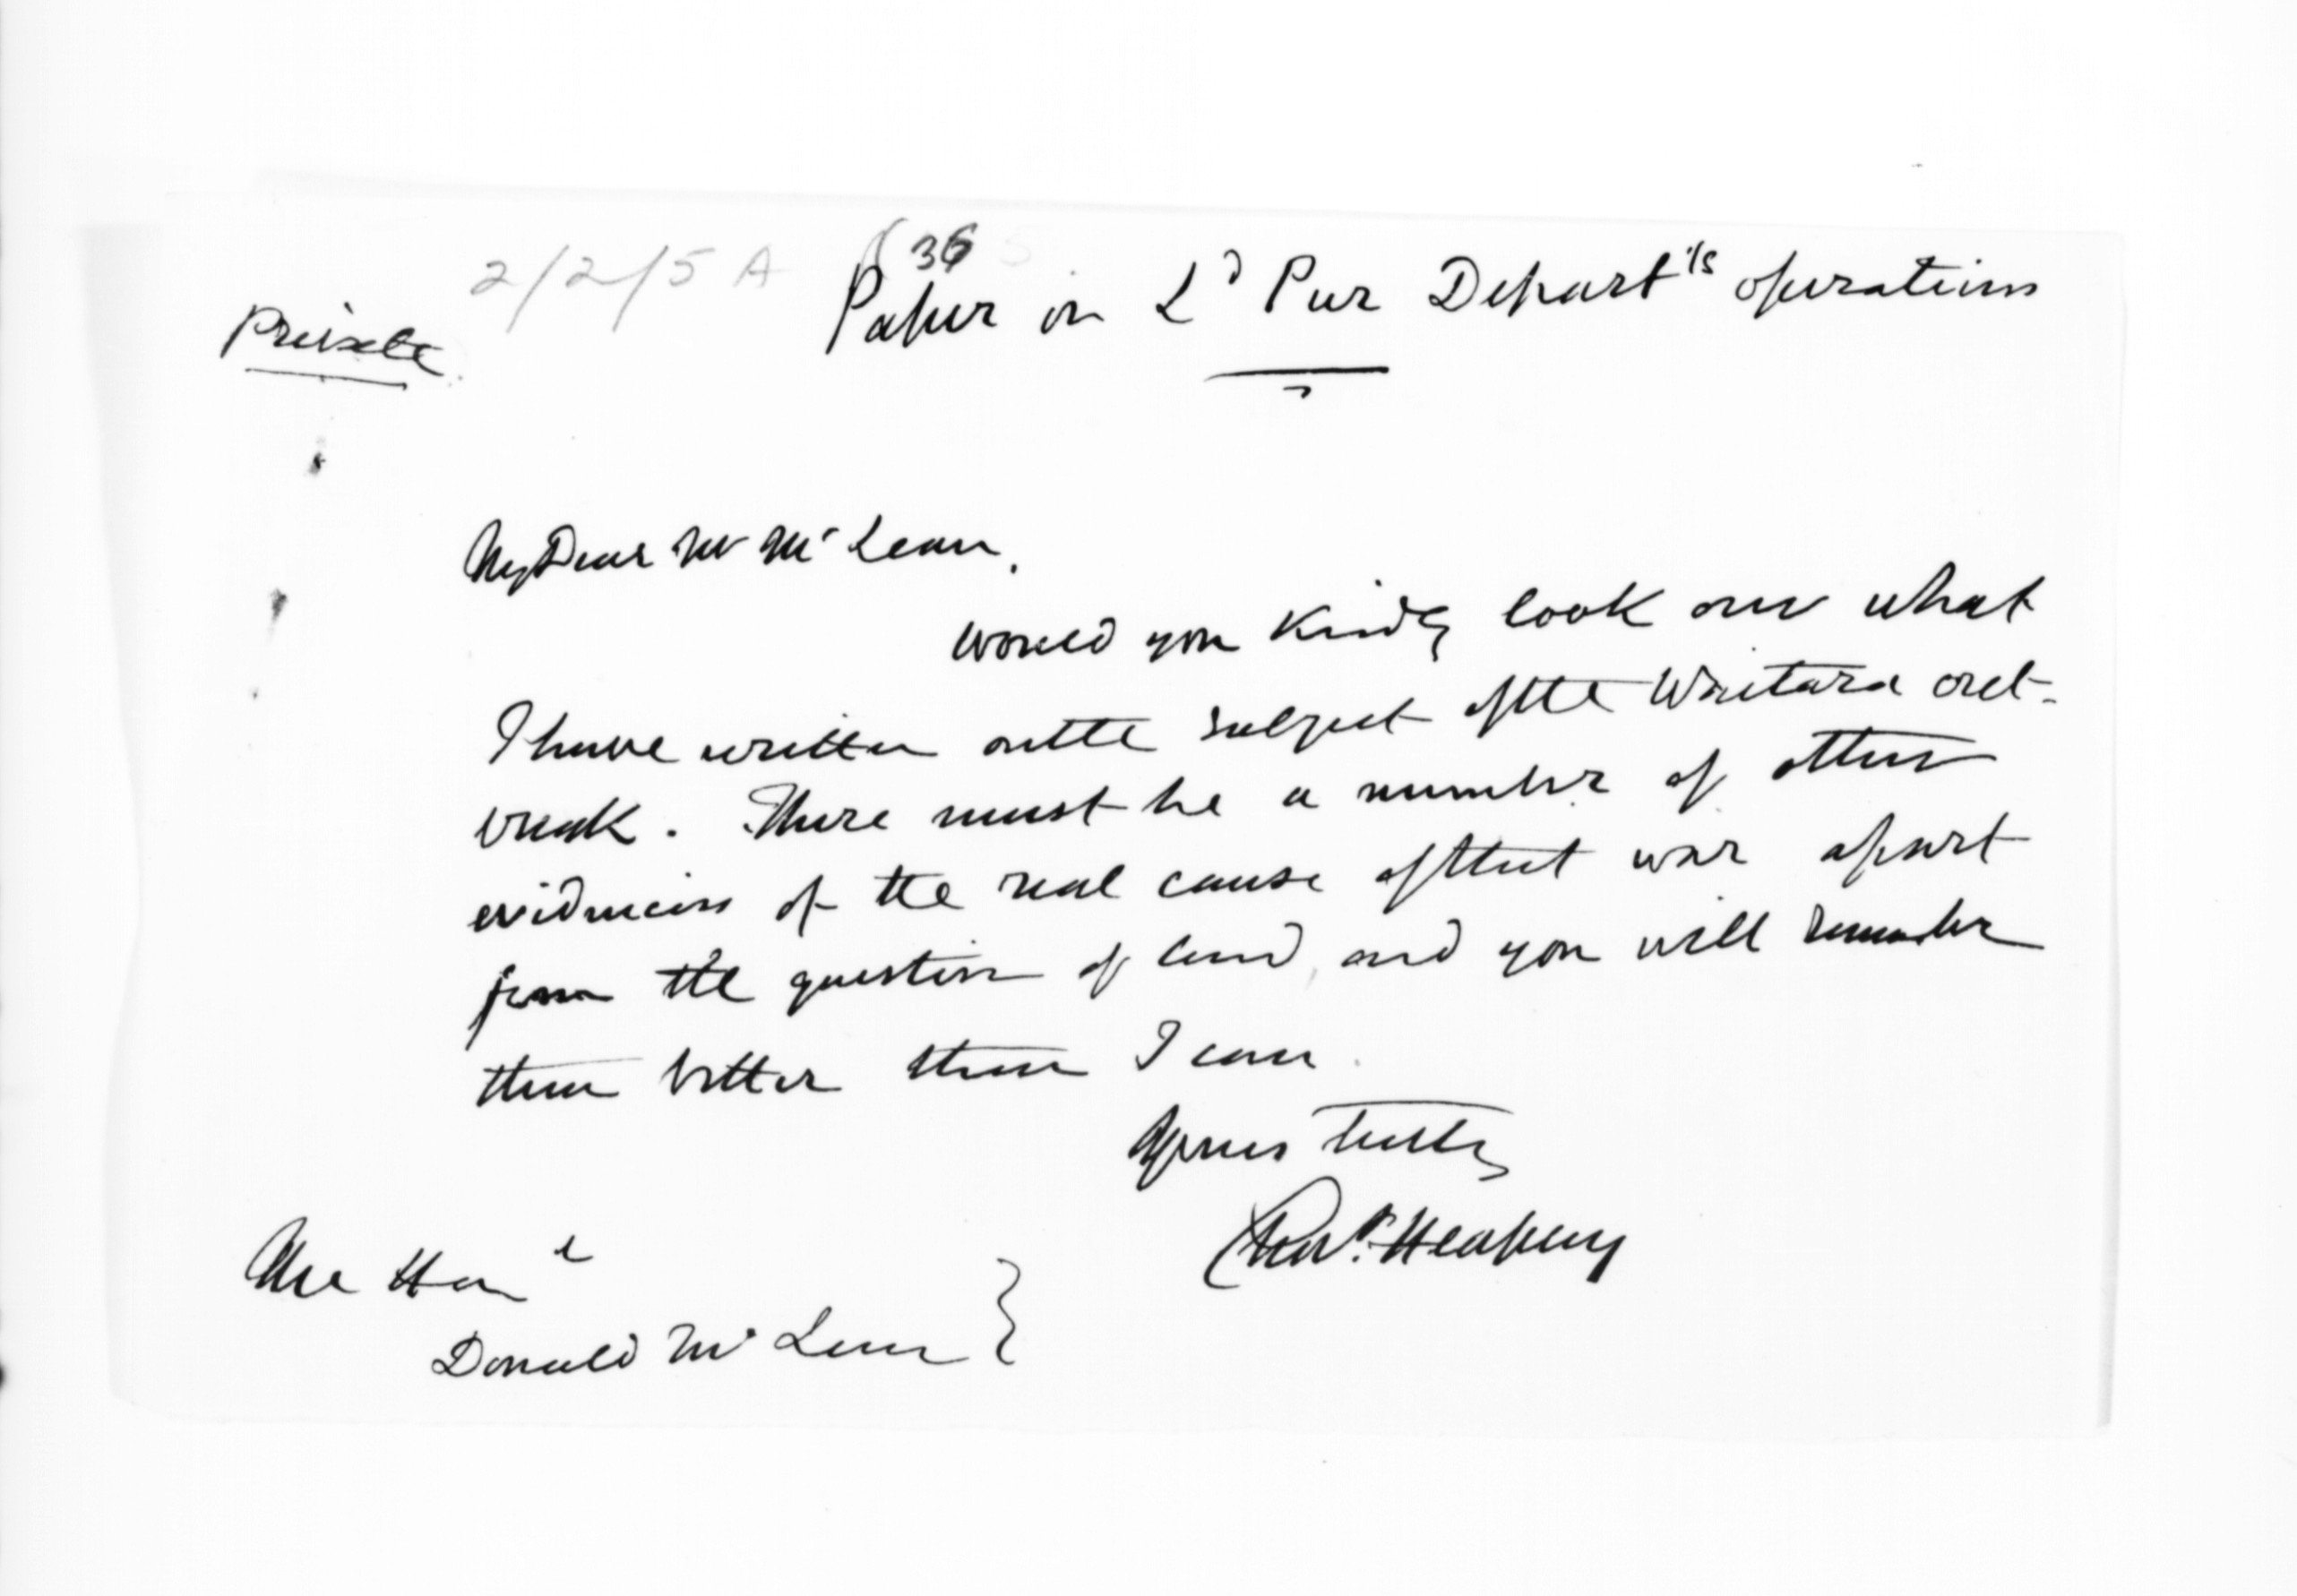 2/2/5 A
36
Private
Paper on Ld Pur Depart's operations
My Dear Mr McLean.
Would you kindly look over what
I have written on the subject of the Waitara out-
break. There must be a number of other
evidences of the real cause of that war apart
from the question of land, and you will remember
them better than I can.
Yours truly
Chas. Heaphy
The Honl
Donald McLean }